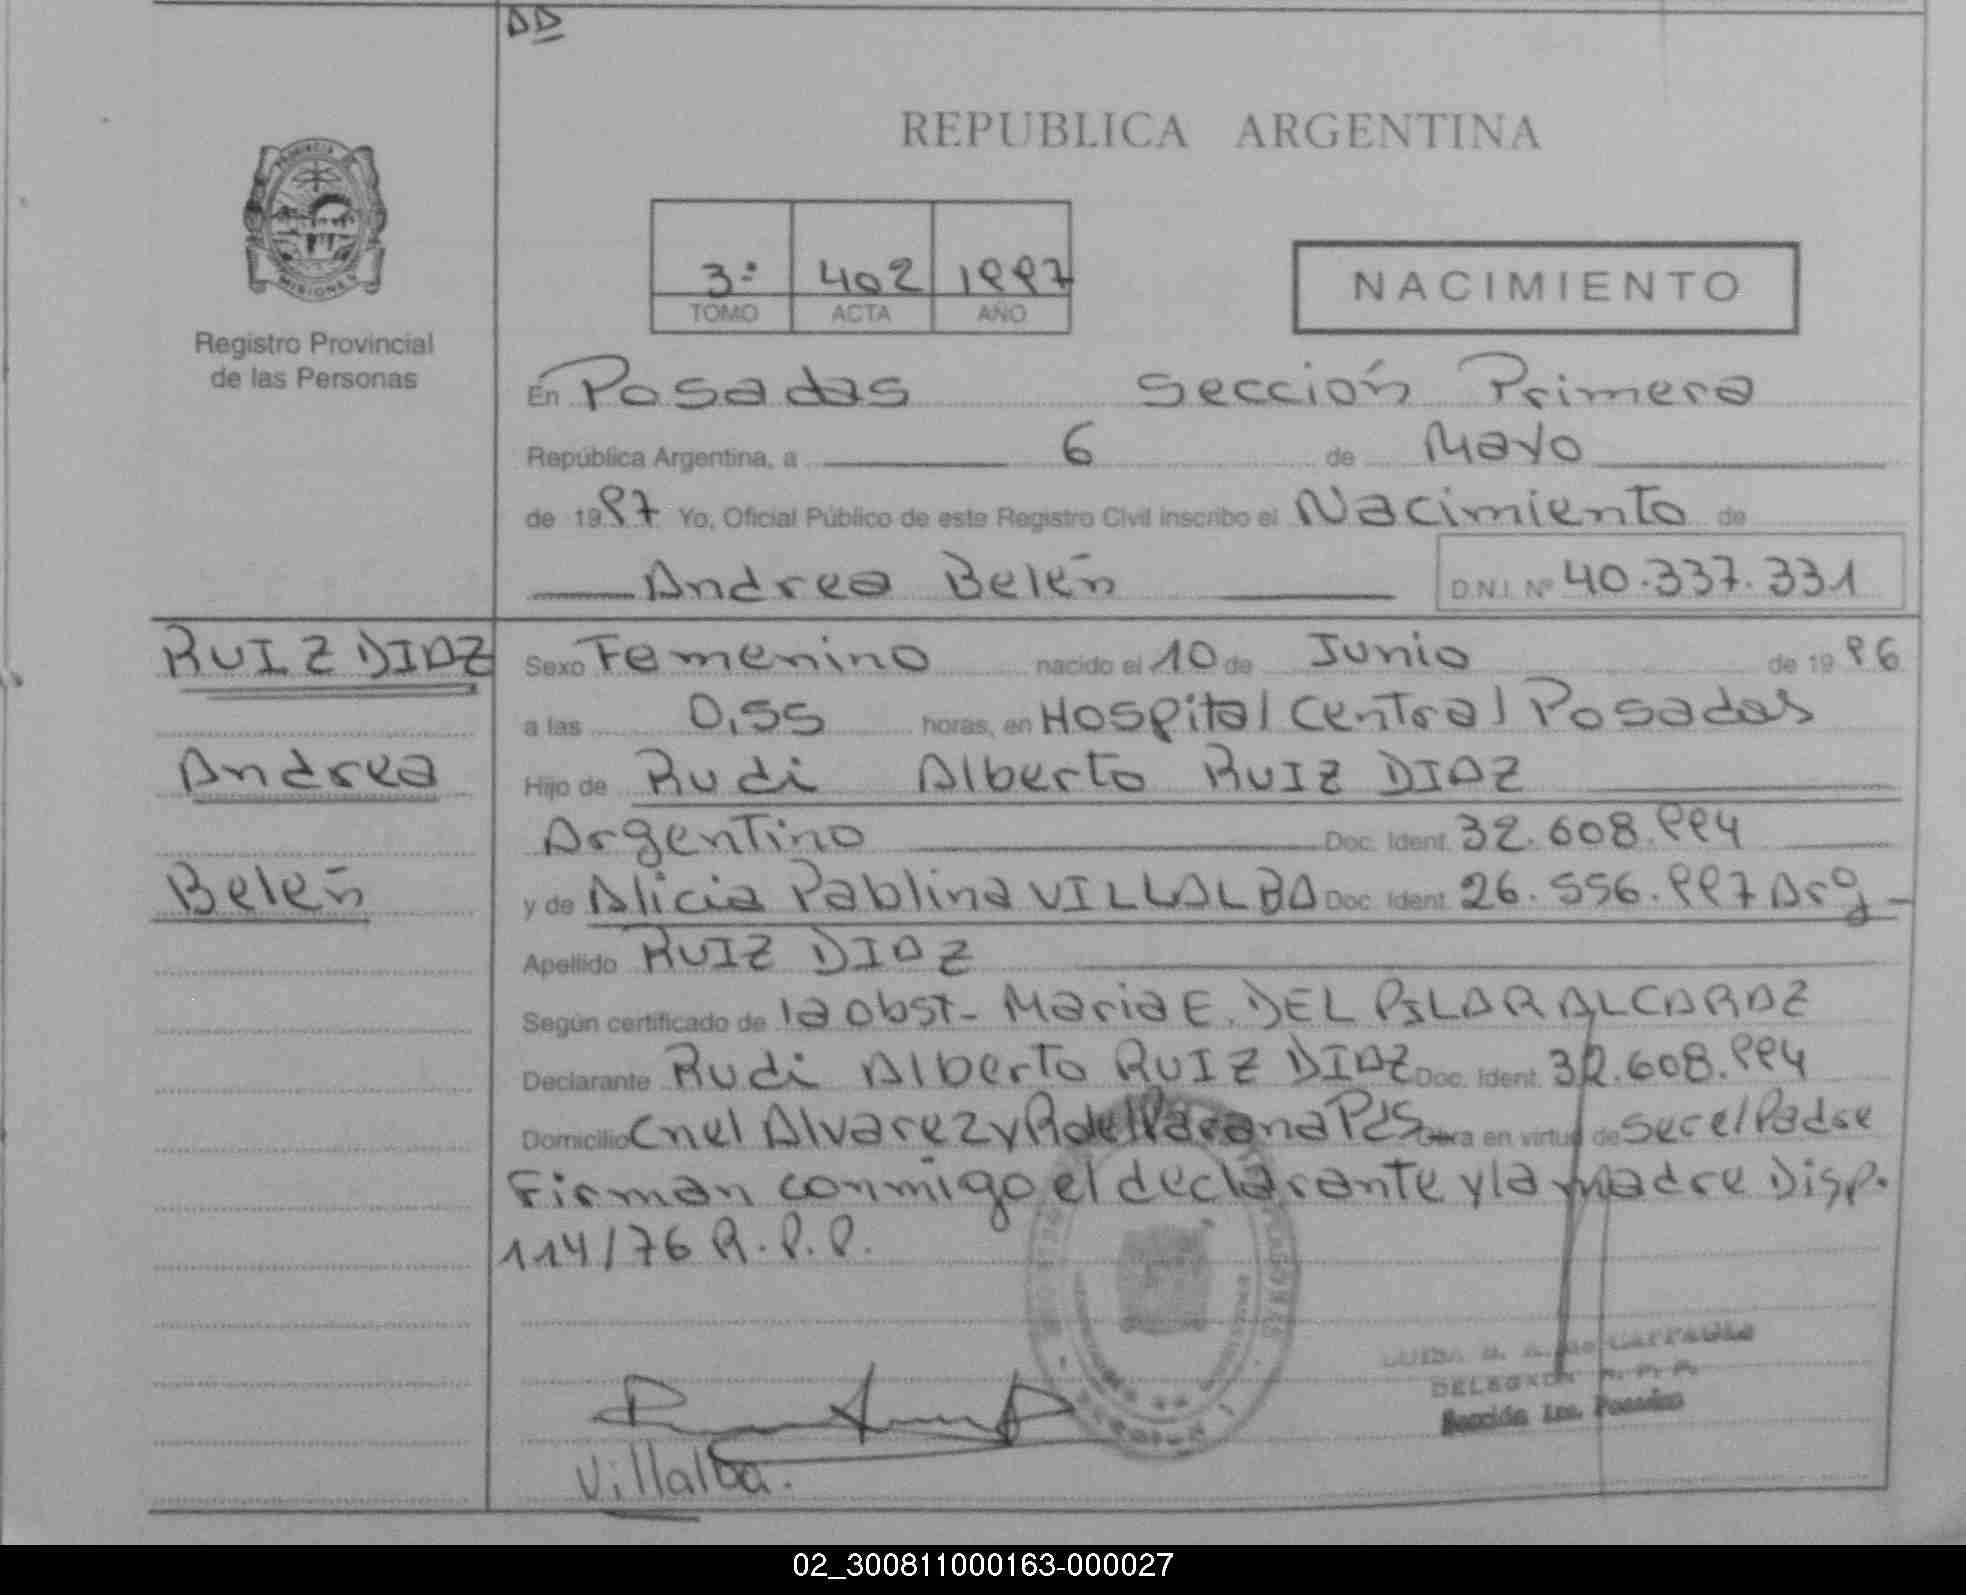 DD
REPUBLICA ARGENTINA
PROVINCIA
MISIONES
Registro Provincial
de las Personas
3º 402 1997
TOMO ACTA AÑO
NACIMIENTO
En Posadas Sección Primera
República Argentina, a 6 de Mayo
de 1997 Yo, Oficial Público de este Registro Civil inscribo el Nacimiento de
Andrea Belén D.N.I. Nº 40.337.331
RUIZ DIAZ
Andrea
Belén
Sexo Femenino nacido el 10 de Junio de 1996
a las 0,55 horas, en Hospital Central Posadas
Hijo de Rudi Alberto RUIZ DIAZ
Argentino Doc. Ident. 32.608.994
y de Alicia Pablina VILLALBA Doc. Ident. 26.556.997 Arg-
Apellido RUIZ DIAZ
Según certificado de la obst- Maria E. DEL PILAR ALCARAZ
Declarante Rudi Alberto RUIZ DIAZ Doc. Ident. 32.608.994
Domicilio Cnel Alvarez y R del Parana Pds Obra en virtud de ser el Padre
Firman conmigo el declarante y la madre Disp.
114/76 R.P.P.
DELEGADA R. P. P.
Sección 1ra. Posadas
Villalba.
02_300811000163-000027